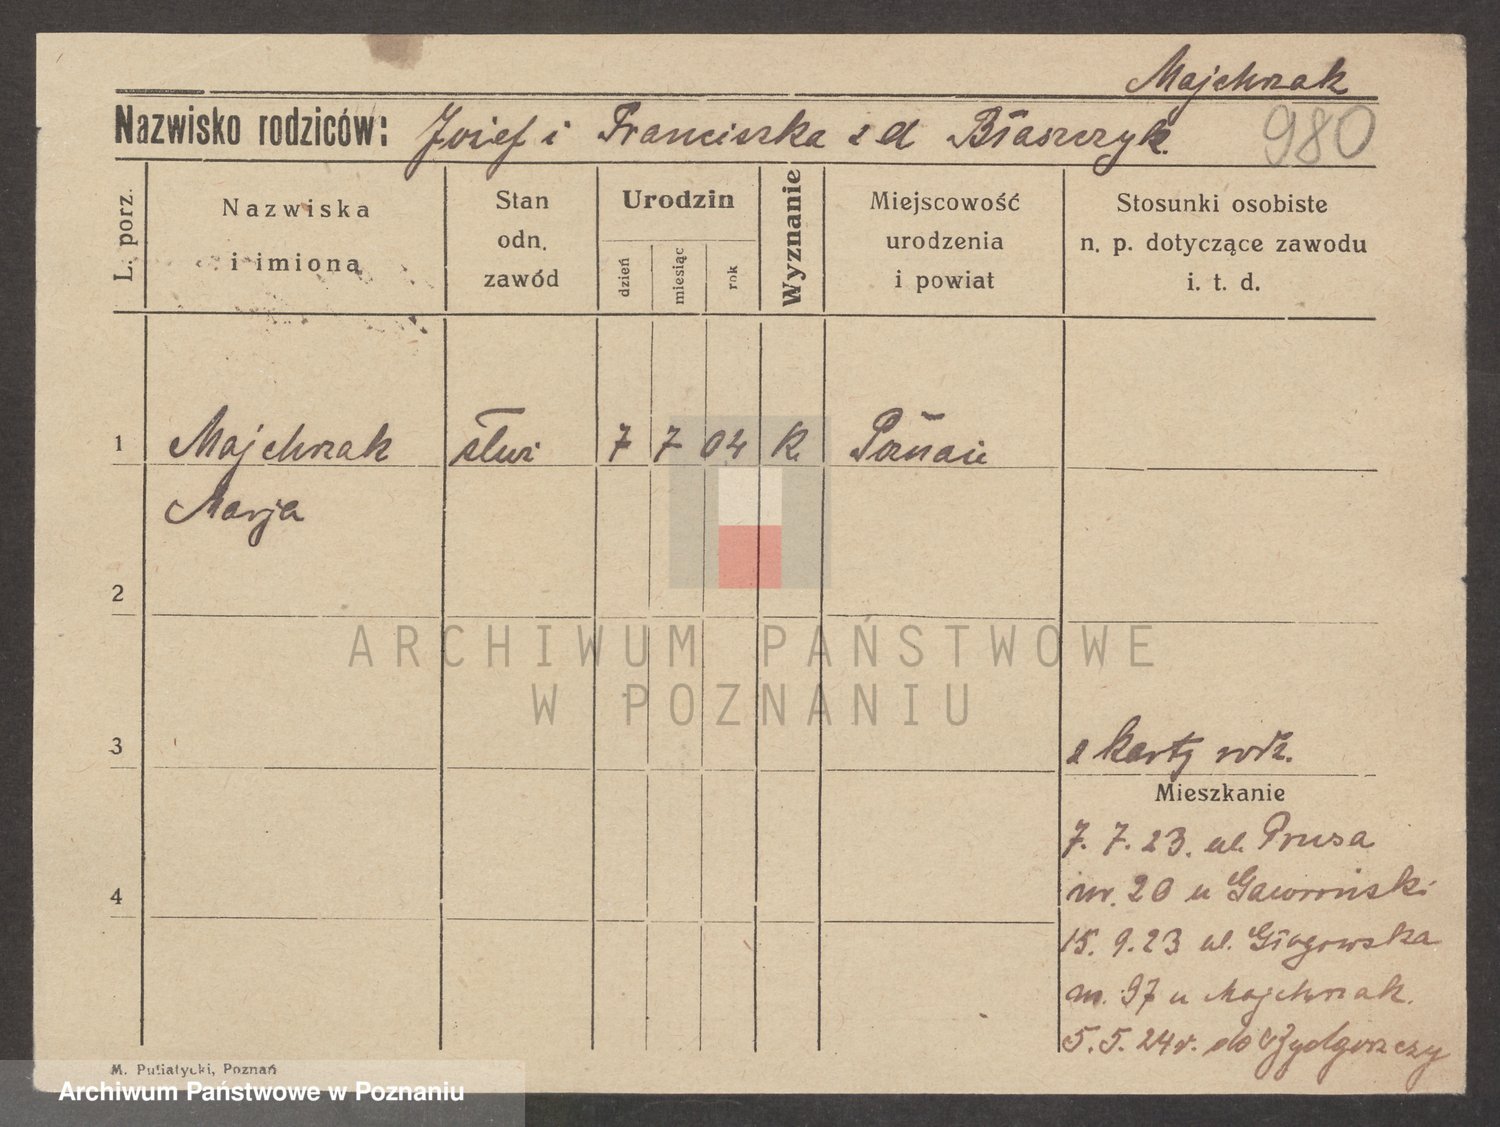 Majchrzak
Nazwisko rodziców: Józef i Franciszka z d Błaszczyk.
980
L. porz.
Nazwiska
i imiona
Stan
odn.
zawód
Urodzin
dzień
miesiąc
rok
Wyznanie
Miejscowość
urodzenia
i powiat
Stosunki osobiste
n. p. dotyczące zawodu
i. t. d.
1 Majchrzak 7 7 04 k. Poznań
Marja
2
ARCHIWUM PAŃSTWOWE
W POZNANIU
3
z karty rodz.
Mieszkanie
7. 7. 23. ul. Prusa
nr. 20 u Gaworński
4
15. 9. 23 ul. Głogowska
nr. 97 u Majchrzak.
5. 5. 24r. do Bydgoszczy
M. Putiatycki, Poznań
Archiwum Państwowe w Poznaniu